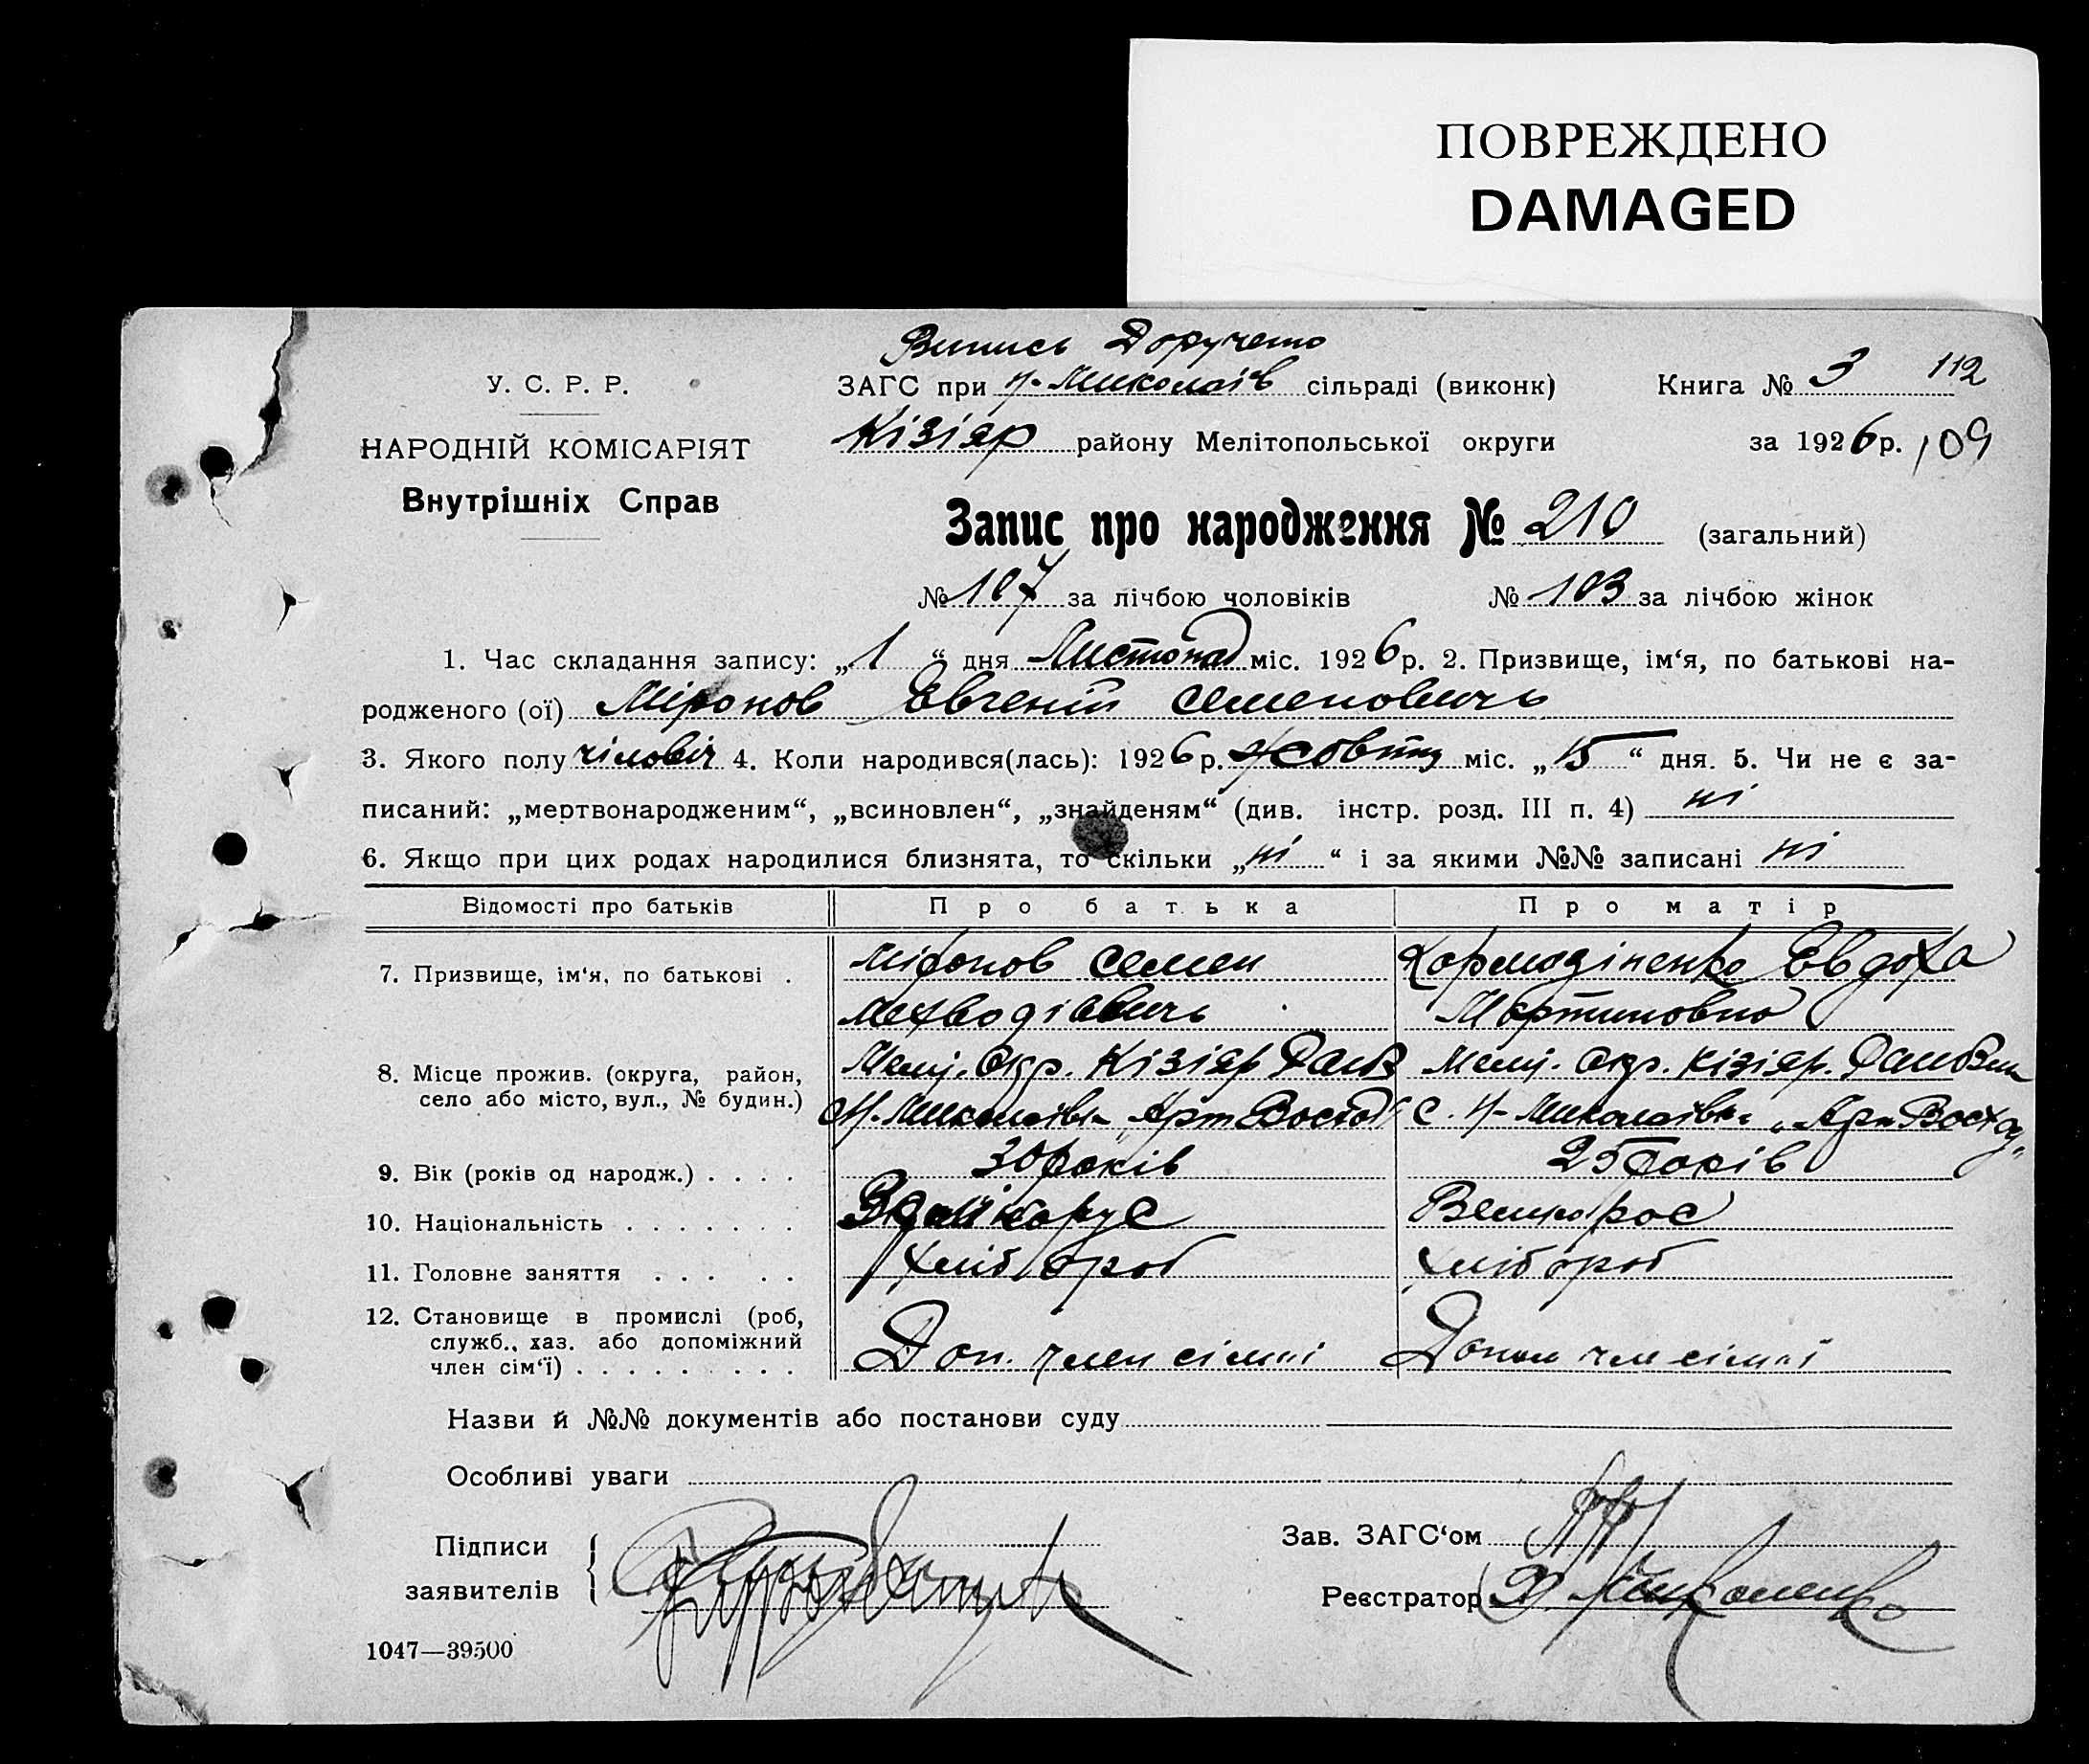 ПОВРЕЖДЕНО
DAMAGED
Випись Доручено
У. С. Р. Р. ЗАГС при Н-Миколаїв сільраді (виконк) Книга № 3 112
НАРОДНІЙ КОМІСАРІЯТ Кізіяр району Мелітопольської округи за 1926 р. 109
Внутрішніх Справ
Запис про народження № 210 (загальний)
№ 107 за лічбою чоловіків № 103 за лічбою жінок
1. Час складання запису: „1“ дня Листопад міс. 1926 р. 2. Призвище, ім‘я, по батькові на-
родженого (ої) Міронов Євгеній Семеновичь
3. Якого полу чіловіч 4. Коли народився(лась): 1926 р. жовтн міс. „15“ дня. 5. Чи не є за-
писаний: „мертвонародженим“, „всиновлен“, „знайденям“ (див. інстр. розд. III п. 4) ні
6. Якщо при цих родах народилися близнята, то скільки „ні“ і за якими №№ записані ні
Відомості про батьків Про батька Про матір
7. Призвище, ім‘я, по батькові . Міронов Семен Евдоха
Мефводієвичь Мартиновна
8. Місце прожив. (округа, район, Меліт. Окр. Кізіяр Меліт. Окр. Кізіяр.
село або місто, вул., № будин.) Н-Миколаївк Арт Восход с. Н-Миколаївка „Арт Восход“
9. Вік (років од народж.) . . . . 30 років 25 років
10. Національність . . . . . . . Велікорус Великорос
11. Головне заняття . . . . . Хлібороб Хлібороб
12. Становище в промислі (роб,
служб., хаз. або допоміжний
член сім‘ї) . . . . . . . . . Доп. член сімьі Допом чл сімьі
Назви й №№ документів або постанови суду
Особливі уваги
Підписи Зав. ЗАГС‘ом
заявителів Реєстратор
1047—39500